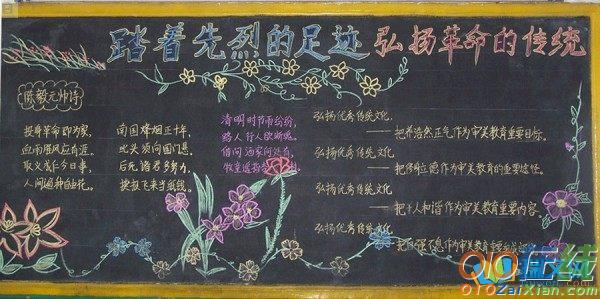 踏着先烈的足迹 弘扬革命的传统
陈毅元帅诗
投身革命即为家,
血雨腥风应有涯。
取义成仁今日事,
人间遍种自由花。
南国烽烟正十年,
此头须向国门悬。
后死诸君多努力,
捷报飞来当纸钱。
清明时节雨纷纷,
路人行人欲断魂。
借问酒家何处有,
牧童遥指
弘扬优秀传统文化
把养浩然正气作为审美教育重要目标。
弘扬优秀传统文化
把修身立德作为审美教育的重要途径。
弘扬优秀传统文化
把人人和谐作为审美教育重要内容。
弘扬优秀传统文化
把自强不息作为审美教育重要
OTOZaiXian.com